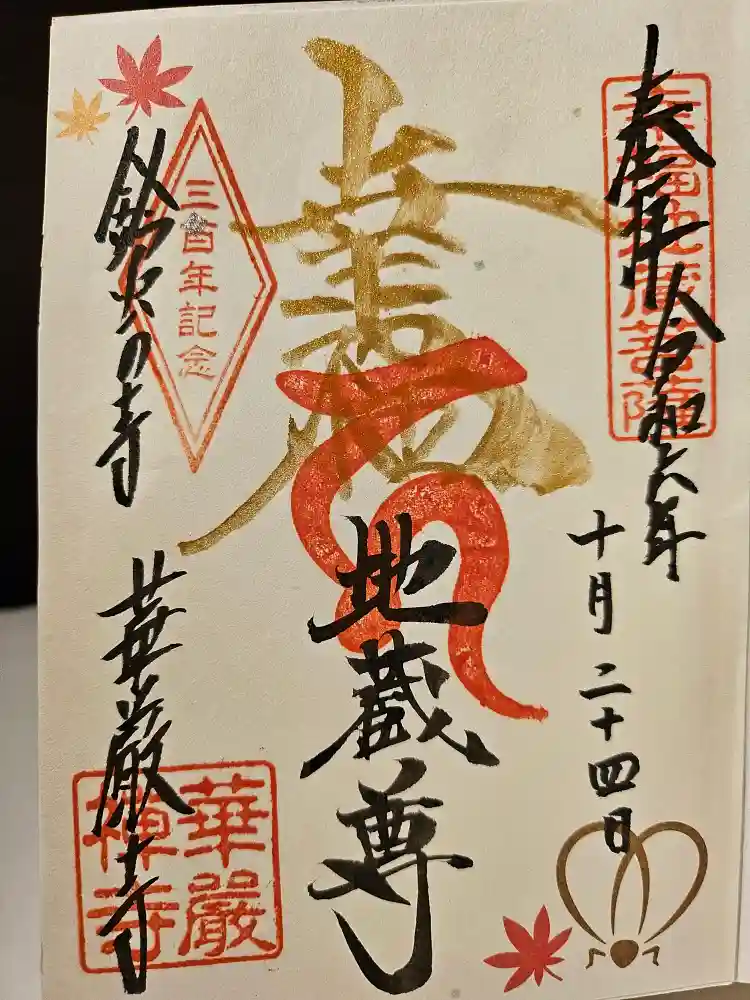 奉拝 令和六年
十月二十四日
幸福地蔵菩薩
地蔵尊
三百年記念
鈴虫の寺
華厳寺
華嚴
禅寺